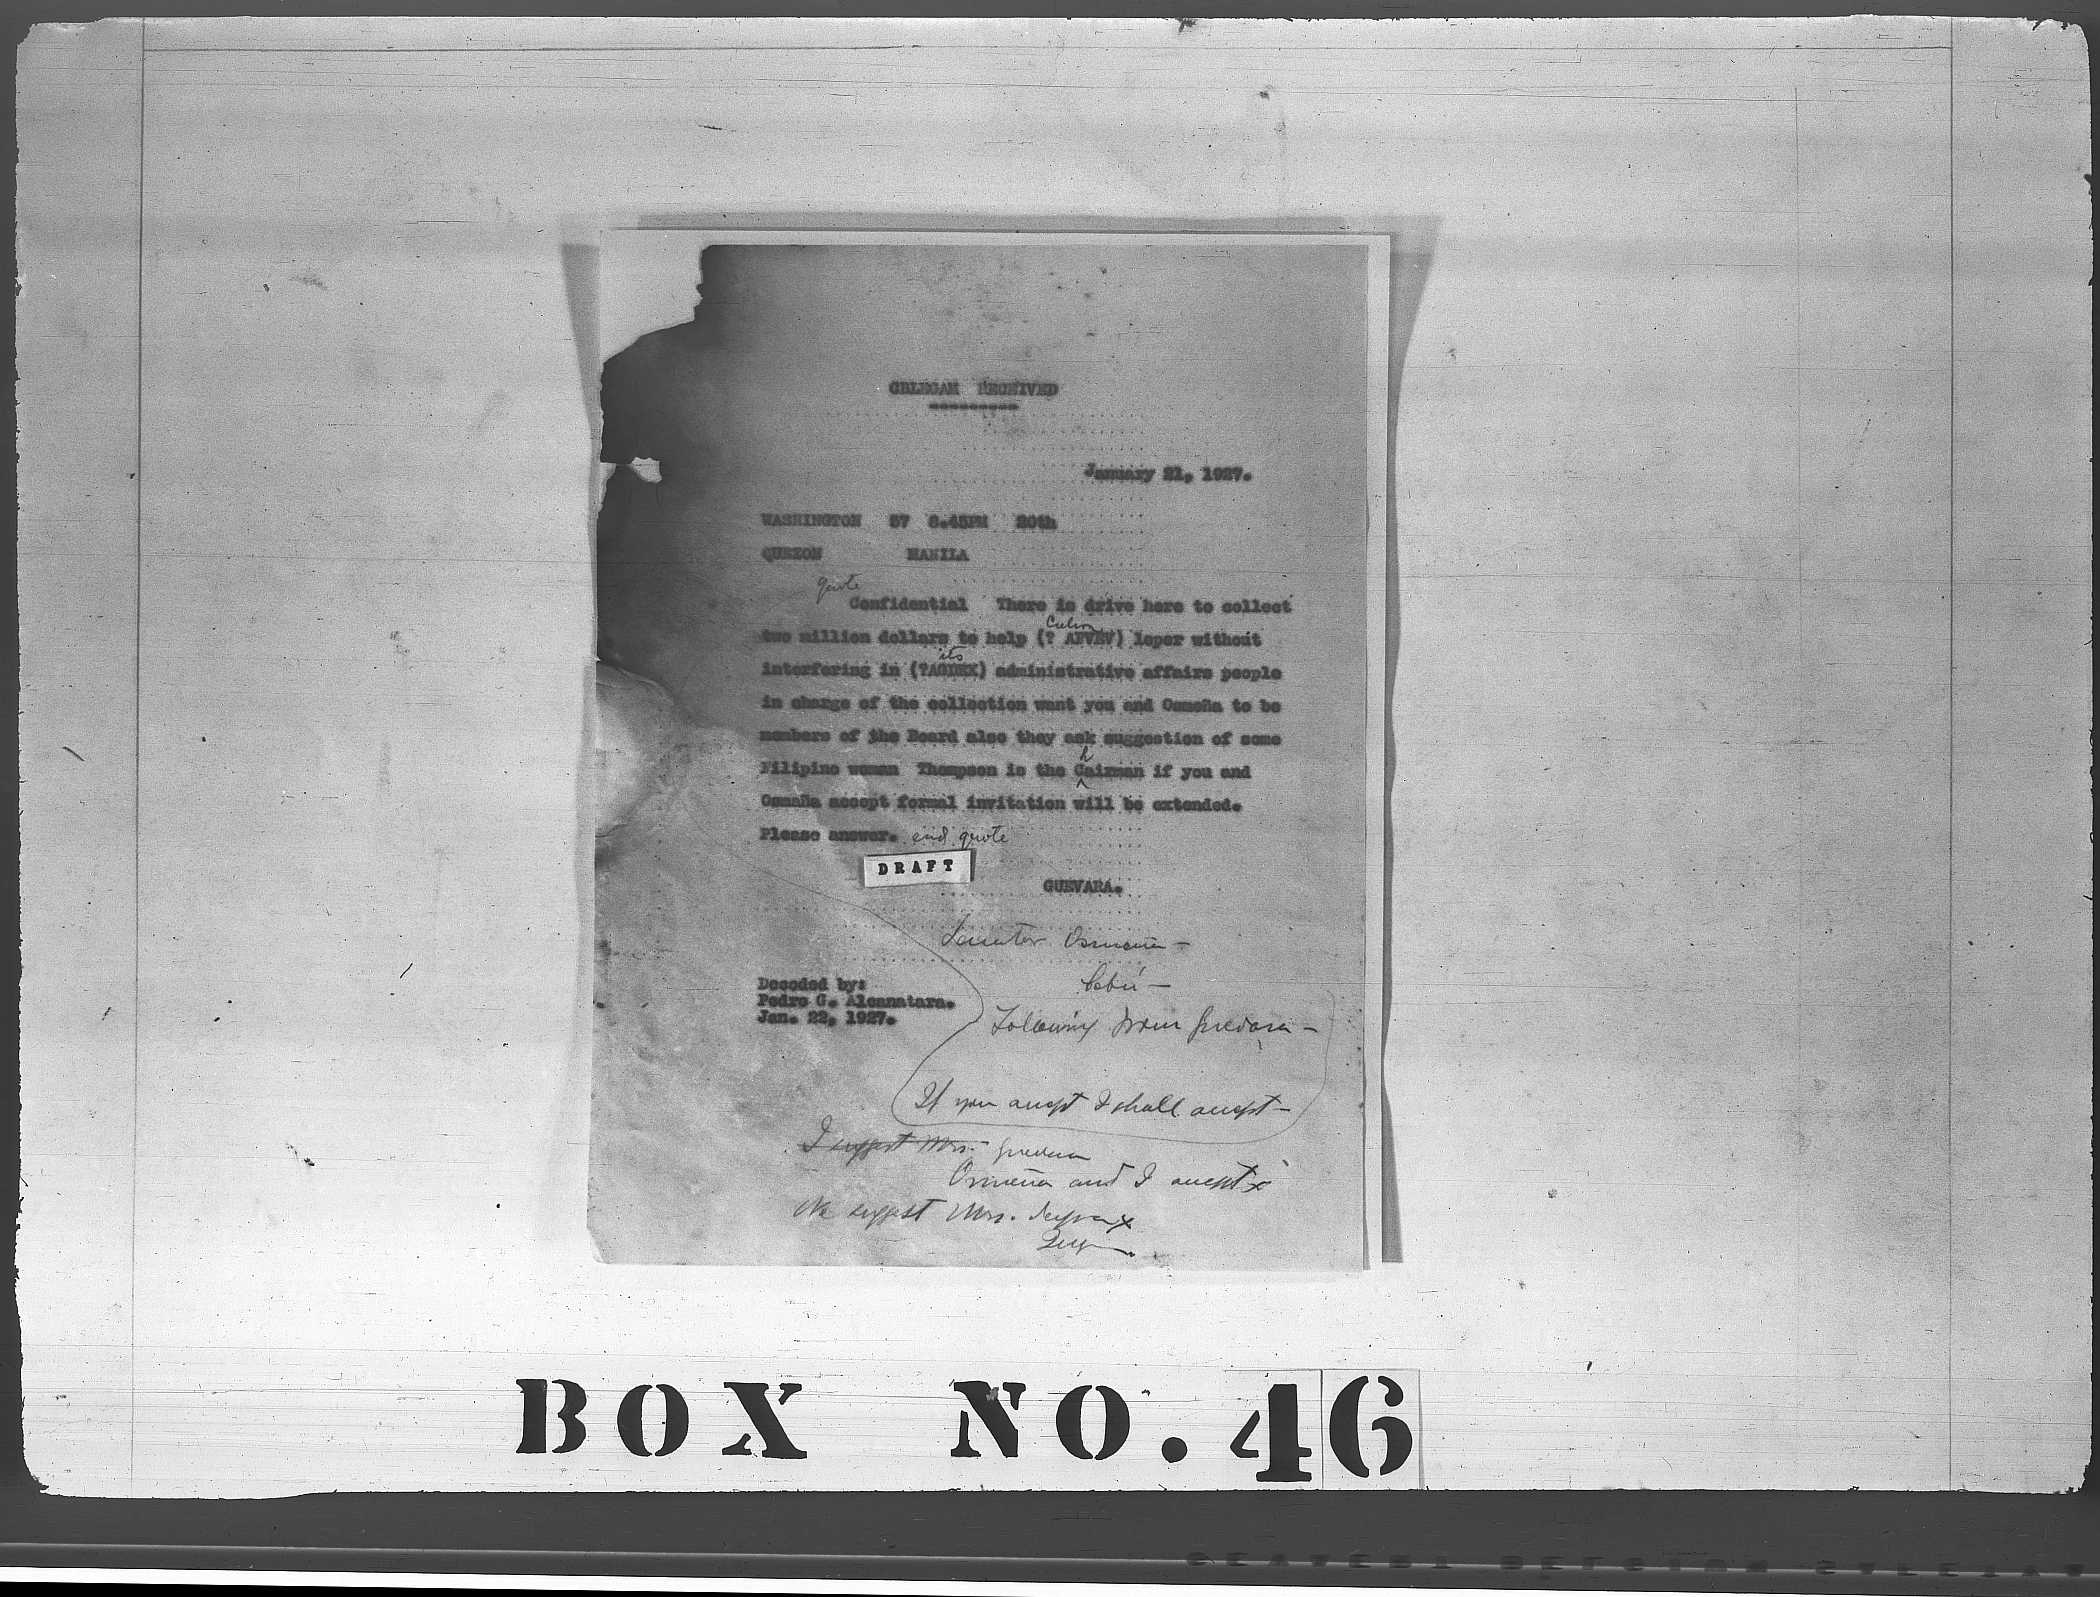 CBLEGAM RECEIVED
January 21, 1927.
WASHINGTON 57 8.45PM 20th
QUEZON MANILA
quote
Confidential There is drive here to collect
Culion
two million dollars to help (? AFVEV) leper without
its
interfering in (?AGDEX) administrative affairs people
in charge of the collection want you and Osmeña to be
members of the Board also they ask suggestion of some
h
Filipino woman Thompson is the Cairman if you and
Osmeña accept formal invitation will be extended.
Please answer. end quote
DRAFT
GUEVARA.
Senator Osmeña —
Cebú —
Decoded by:
Pedro C. Alcannatara.
Jan. 22, 1927.
Following from Guevara —
If you accept I shall accept —
I suggest Mrs. Guevara
Osmeña and I accept x
We suggest Mrs. x
BOX NO. 46